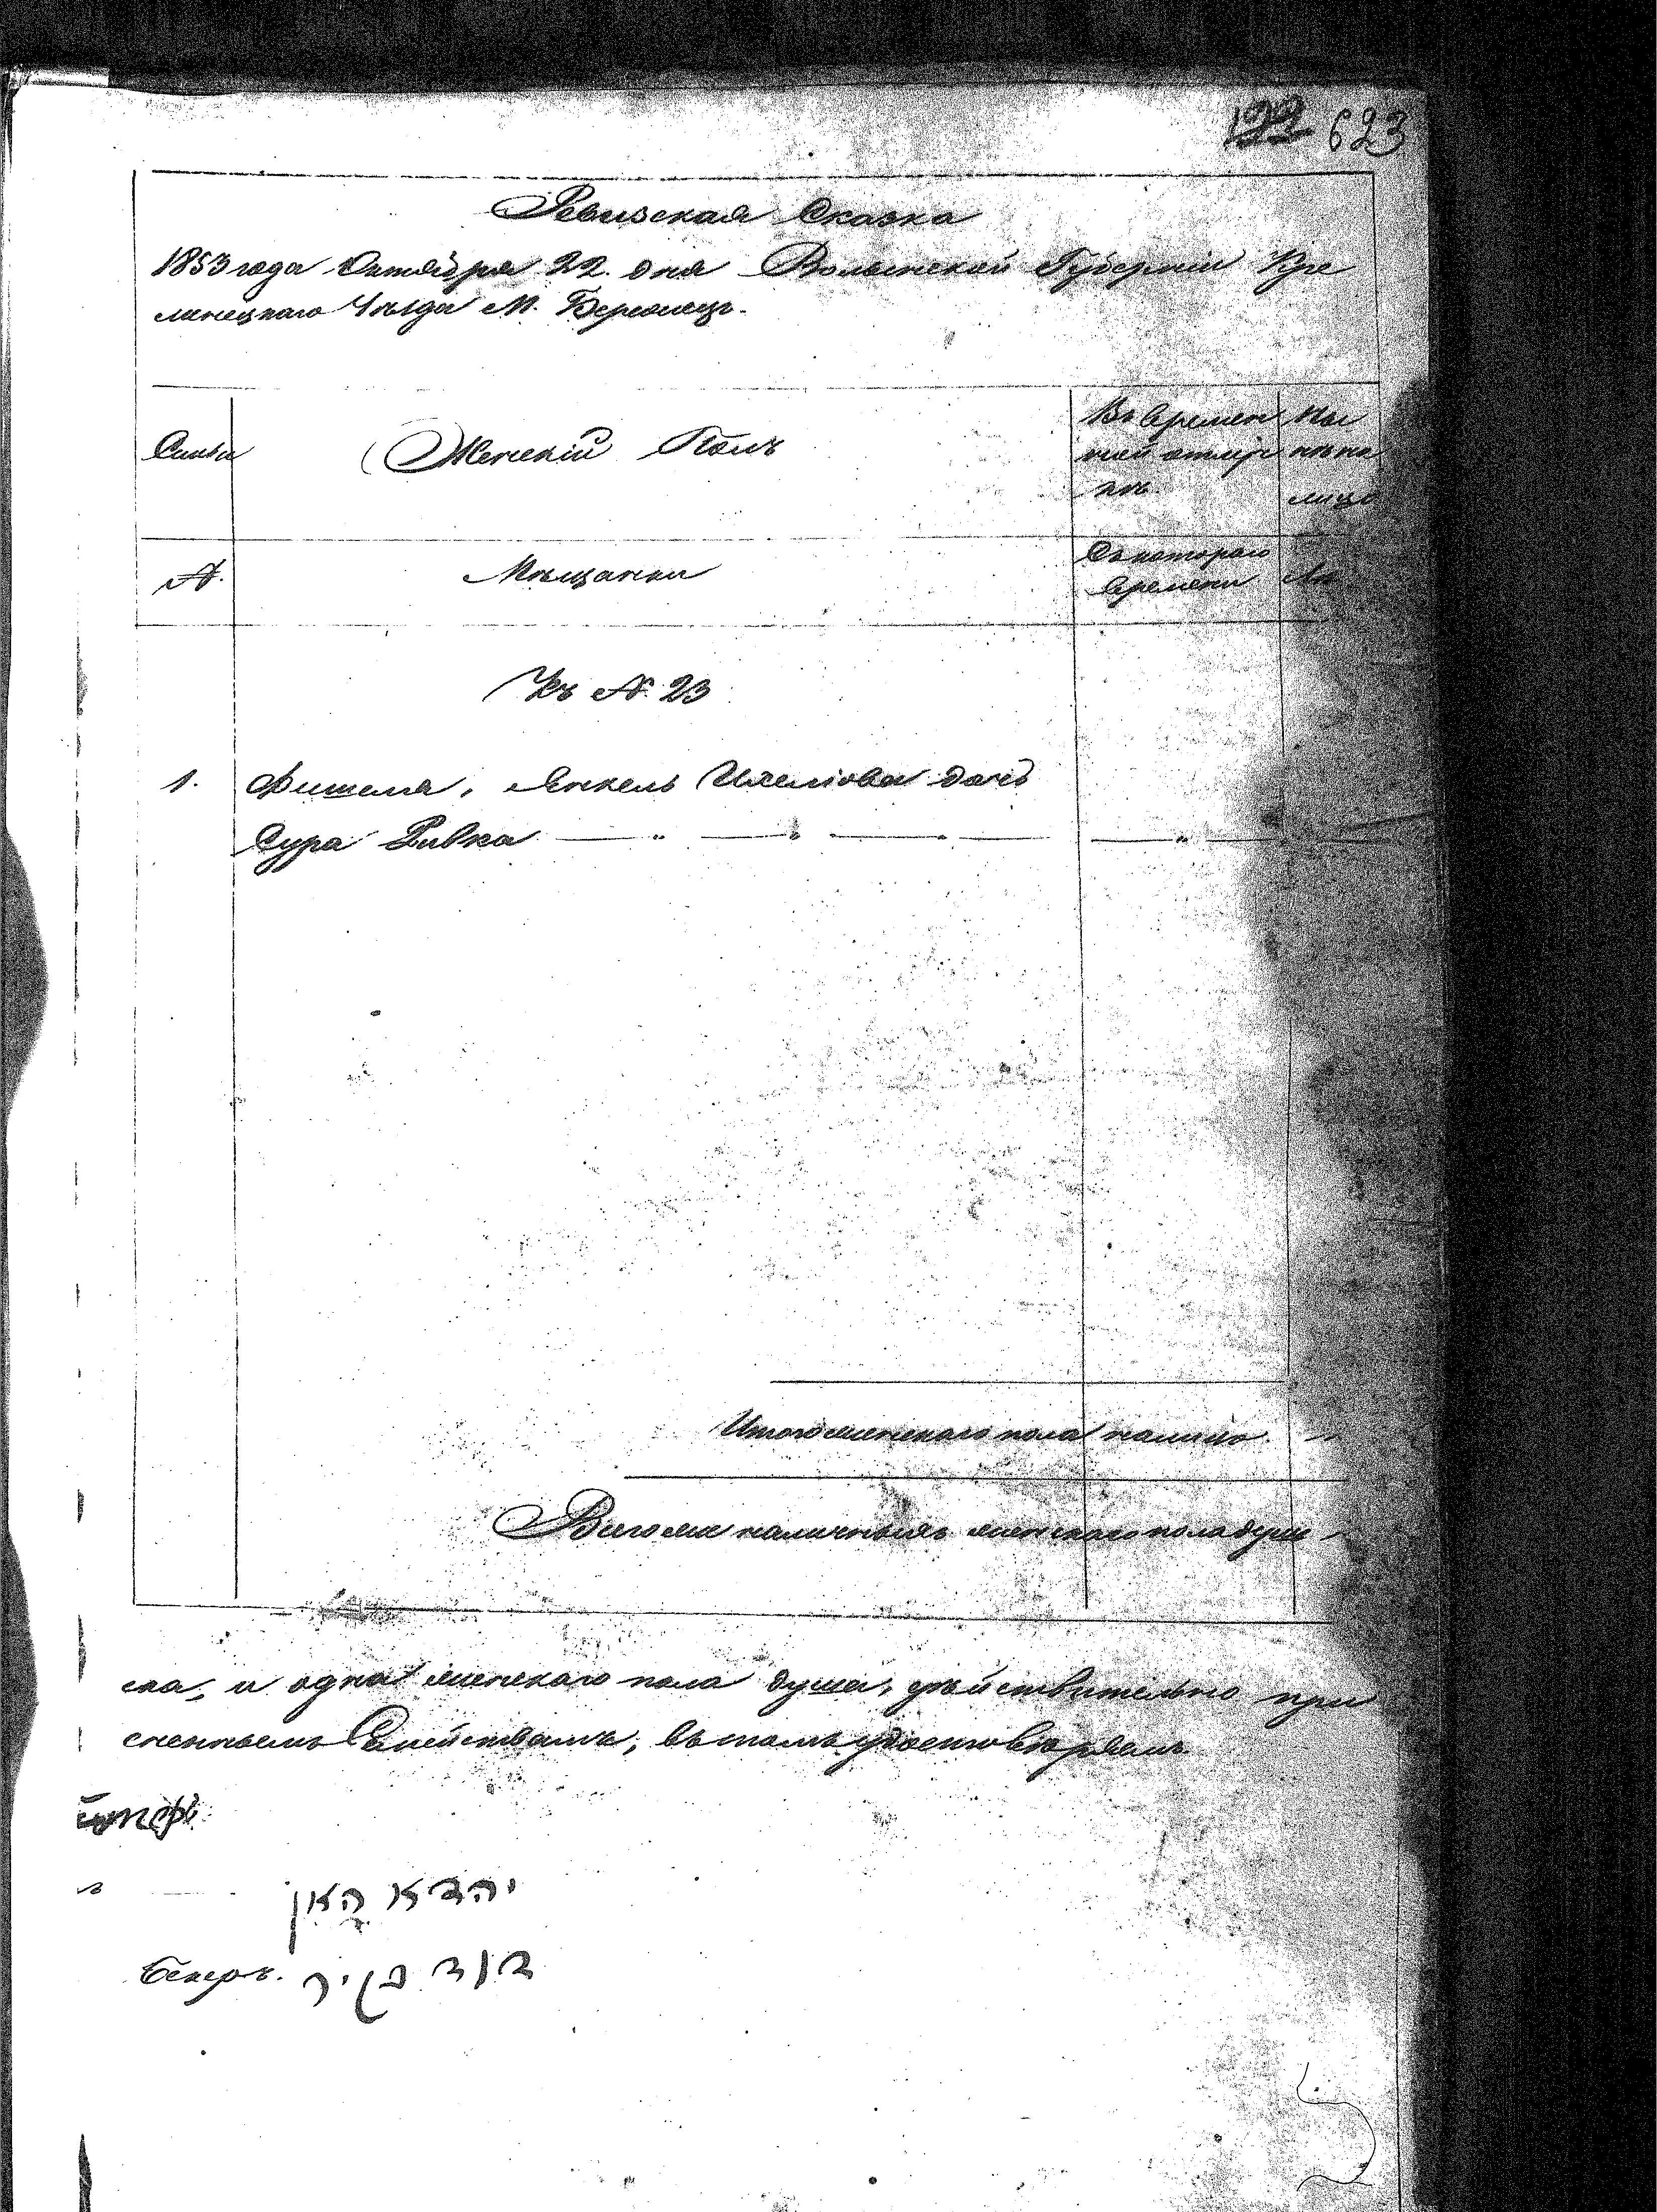 122 623
Ревизская Сказка
1853 года Октября 22. дня Волынской Губерніи Кре
менецкаго Уѣзда М. Бережецъ.
Семьи
Женскій Полъ
Во времен
ной отлуч
кѣ
Ны
нѣ на
лицо
№.
Мѣщанки
Съ котораго
времени
Лѣ
Къ № 23
1. Фишеля, Янкель дочь
Сура Ривка — " — " — " — — " —
Итого женскаго пола налицо "
Всего же наличныхъ женскаго пола душъ "
ска, и одна женскаго пола душа, дѣйствительно при
семъ удостовѣряемъ
יהדא קאן
Бекеръ. דוד בקיר